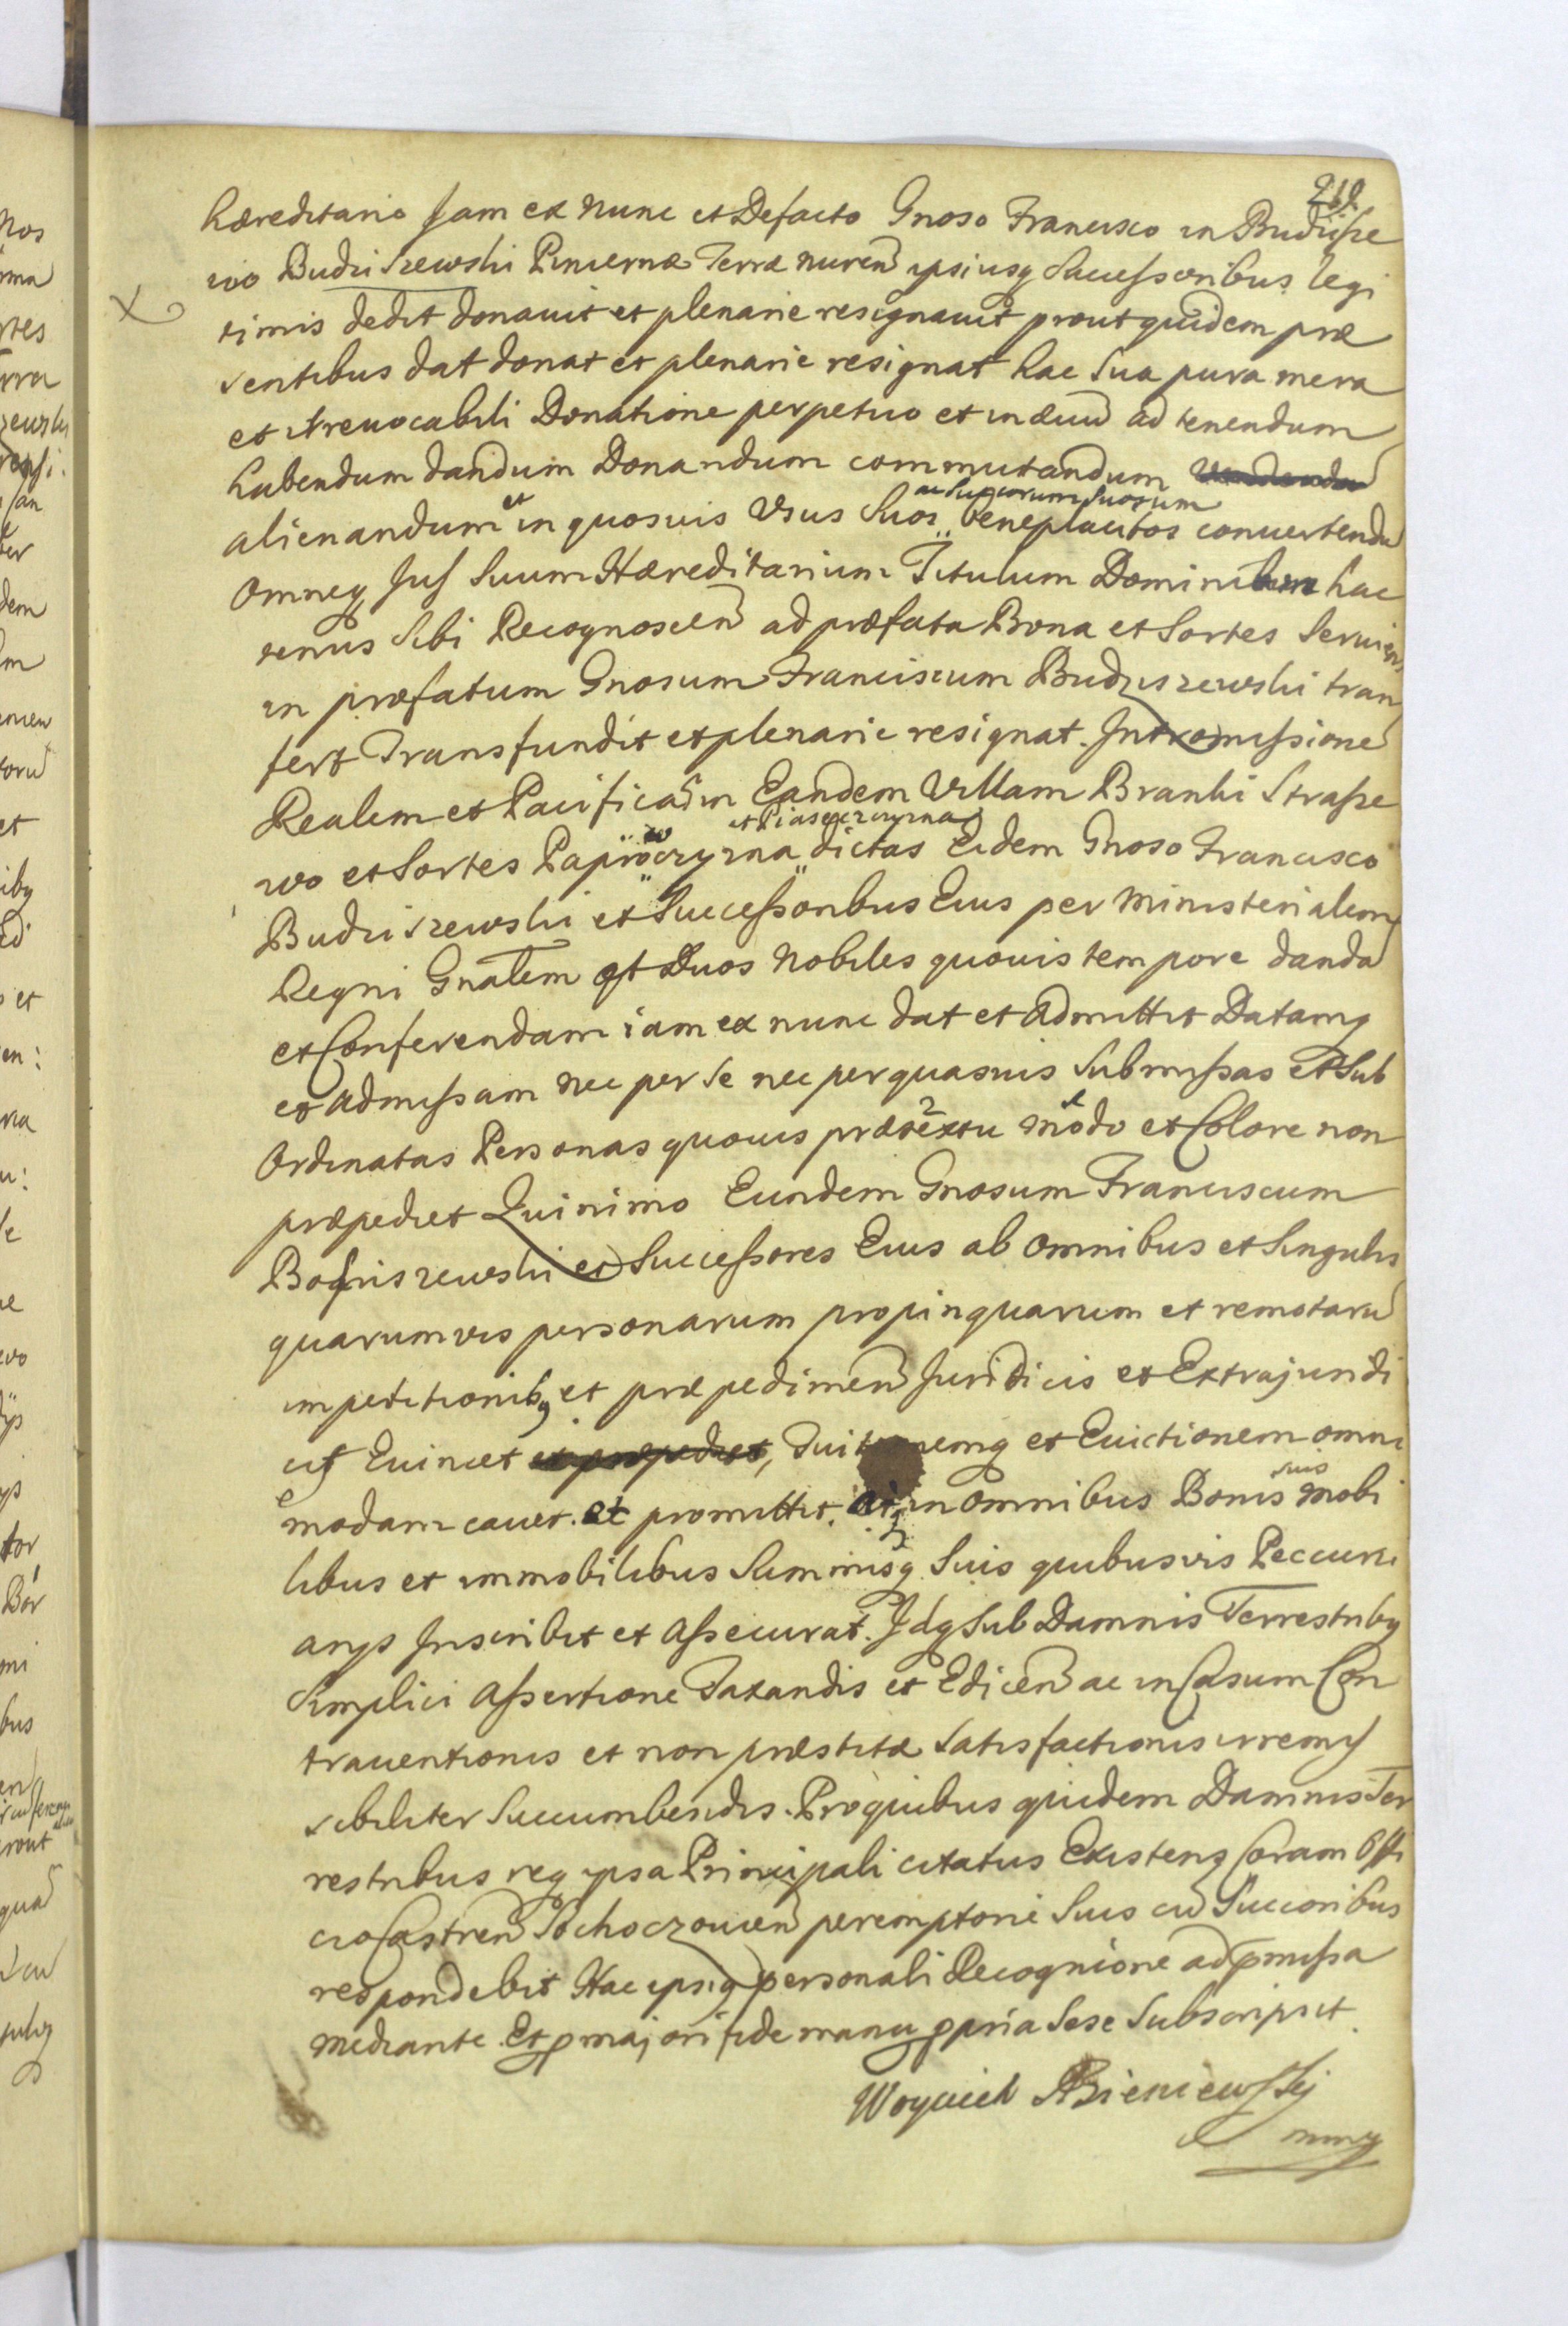 hæreditario Jam ex nunc et Defacto Gnoso Francisco in Budzisze
wo Budziszewski Pincernæ Terræ nuren ipsiusq Successoribus legi
timis dedit donauit et plenarie resignauit prout quidem præ
sentibus dat donat et plenarie resignat hac Sua pura mera
et irreuocabili Donatione perpetuo et in æuū ad tenendum
habendum dandum Donandum commutandum
alienandum et in quosuis Vsus Suos ac Succorum Suorum beneplacitos conuertendū
Omneq Jus Suum Hæreditarium Titulum Dominium hac
tenus Sibi Recognoscen ad præfata Bona et Sortes Seruien
in præfatum Gnosum Franciscum Budziszewski trans
fert Transfundit et plenarie resignat. Intromissionē
Realem et Pacificā in Eandem Villam Branki Strasze
wo et Sortes Paprocczyzna et Piaseczczyzna dictas Eidem Gnoso Francisco
Budziszewski et Successoribus Eius per Ministerialem
Regni Gnalem et Duos Nobiles quouis tempore dandā
et Conferendam iam ex nunc dat et Admittit Datamq
et Admissam nec per Se nec per quasuis Submissas et Sub
Ordinatas Personas quouis prætextu modo et Colore non
præpediet Quinimo Eundem Gnosum Franciscum
Budziszewski et Successores Eius ab omnibus et Singulis
quarumvis personarum propinquarum et remotarū
impetitionibq et præpedimen Juridicis et Extrajuridi
cis Euincet et præpediet, Tuitionemq et Euictionem omni
modam cauet et promittit. in omnibus Bonis suis mobi
libus et immobilibus Summisq Suis quibusvis Pecuni
arys Inscribit et Assecurat. Idq Sub Damnis Terrestribq
Simplici Assertione Taxandis et Edicen ac in Casum Con
trauentionis et non præstitæ Satisfactionis irremis
sibiliter Succumbendis. Pro quibus quidem Damnis Ter
restribus req ipsa Principali citatus Existens Coram Offi
cio Castren Sochoczouien peremptorie Suis cū Succoribus
respondebit Hac ipsiq personali Recognicione ad pmissa
mediante. Et p majori fide manu ppria Sese Subscripsit.
Woyciech Bieniewskj
mmp